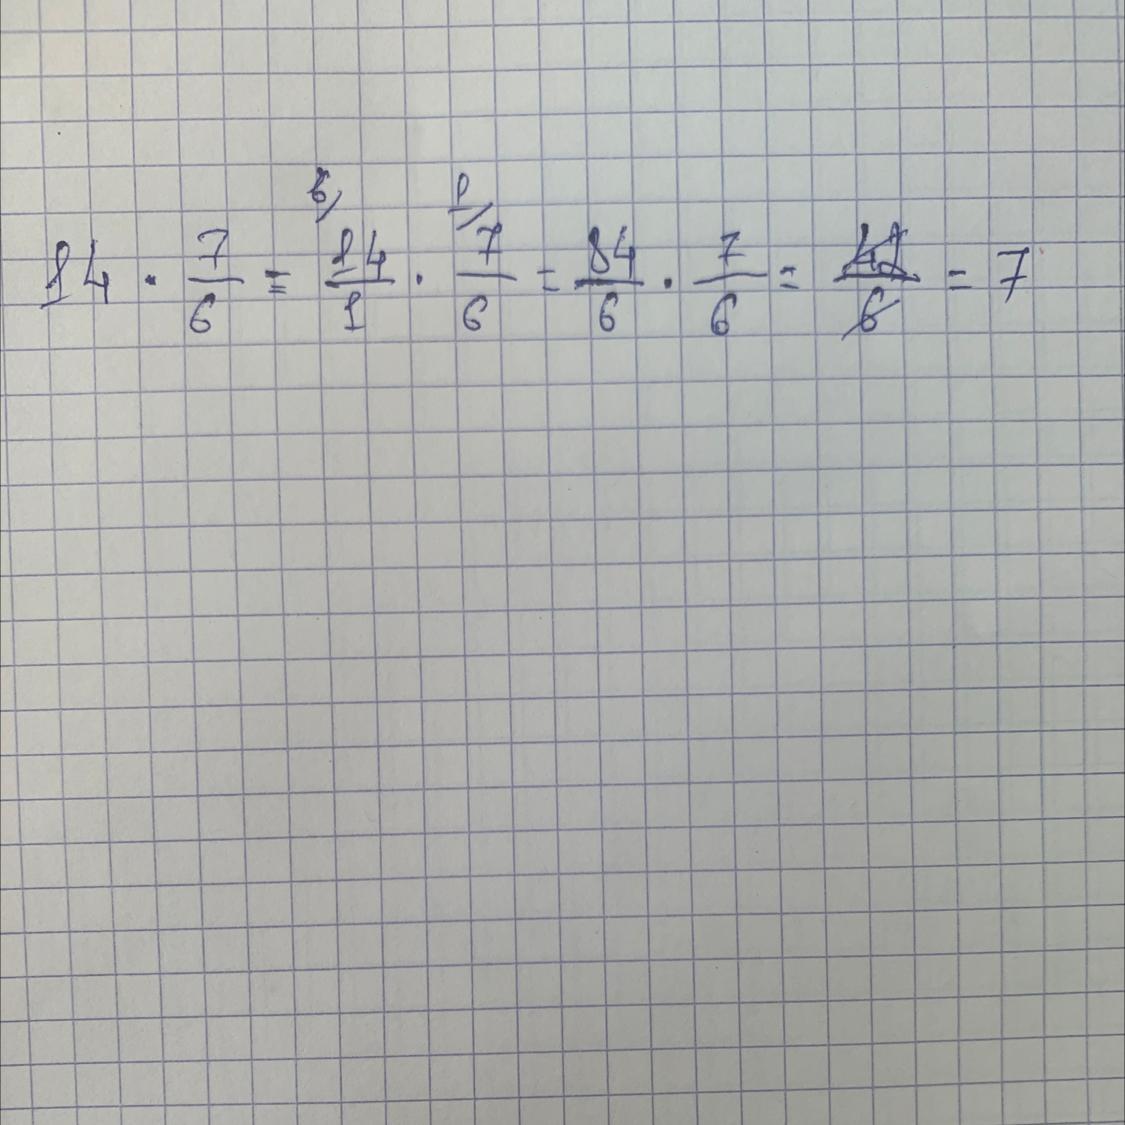 6/ 1/
14 · 7/6 = 14/1 · 7/6 = 84/6 · 7/6 = 42/6 = 7